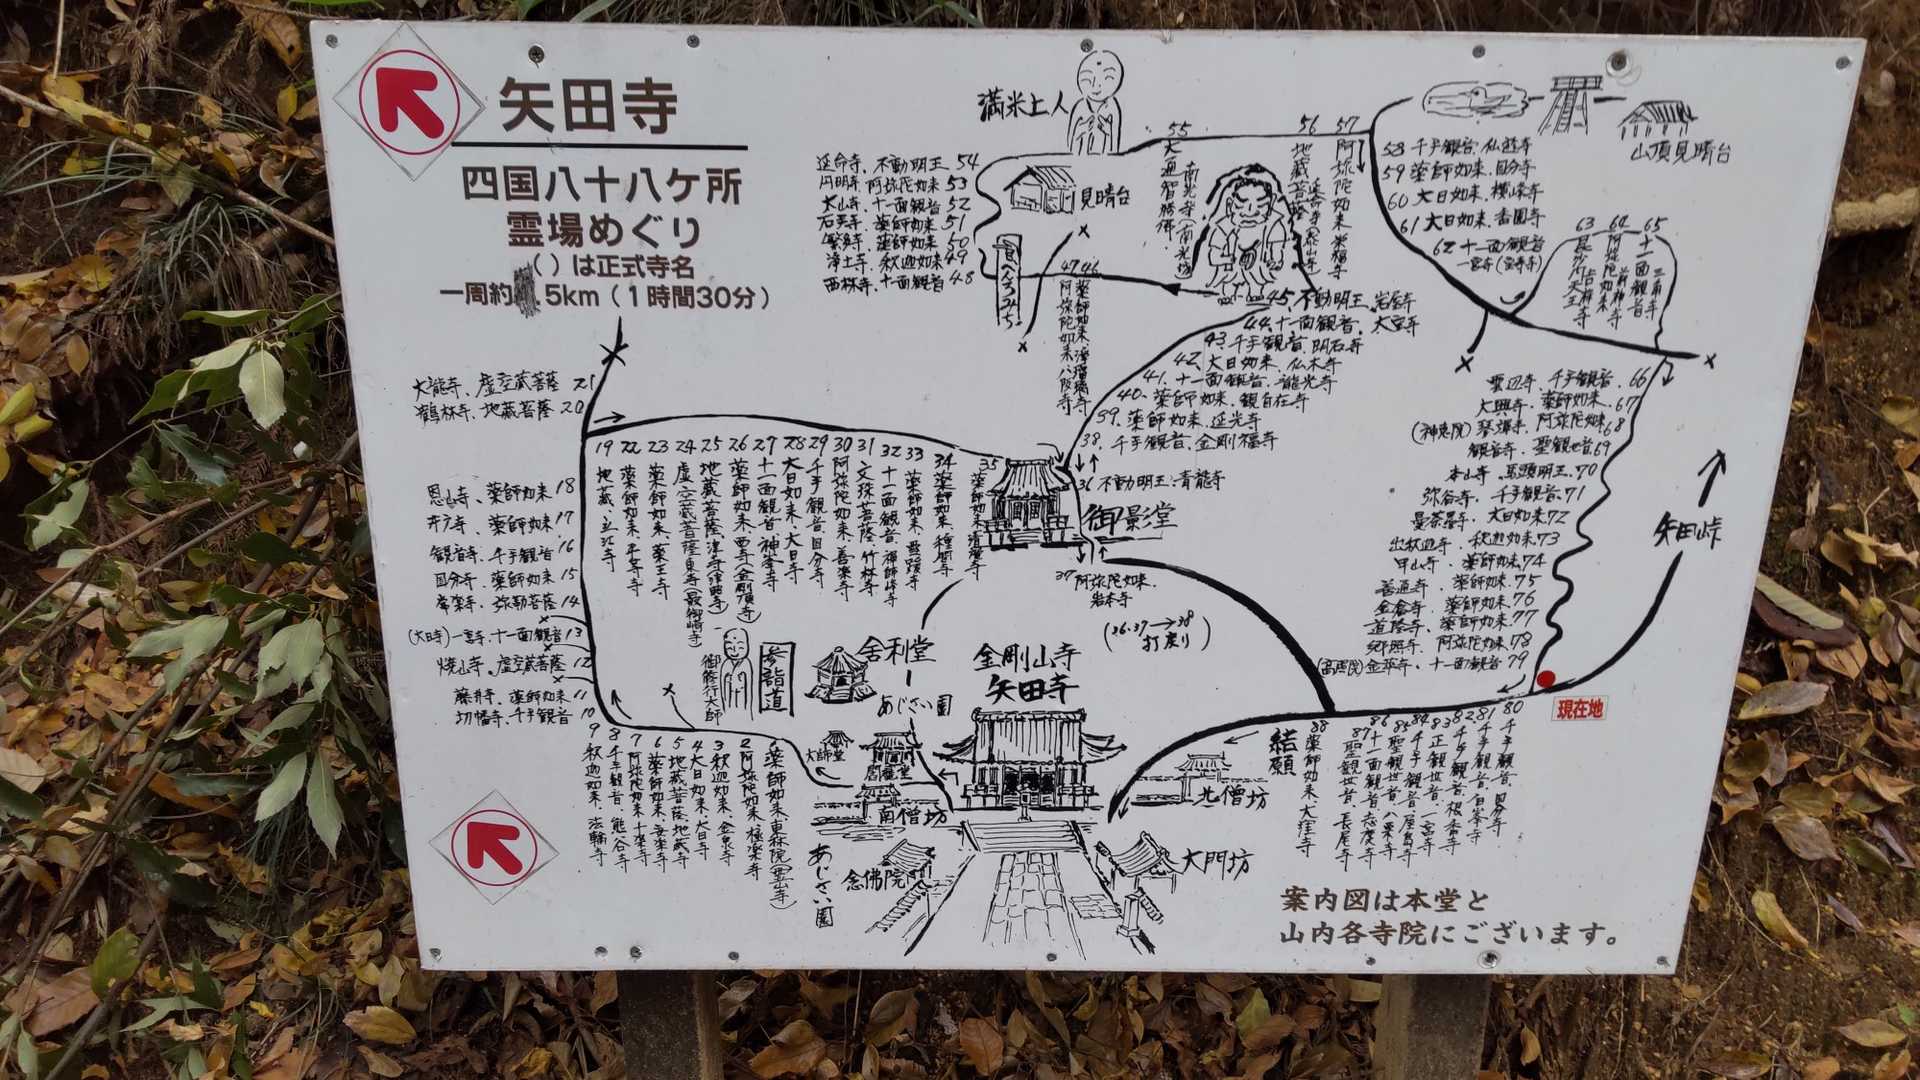 矢田寺
四国八十八ケ所
霊場めぐり
( )は正式寺名
一周約 .5km(1時間30分)
満米上人
見晴台
山頂見晴台
延命寺、不動明王 54
円明寺、阿弥陀如来 53
太山寺、十一面観音 52
石手寺、薬師如来 51
繁多寺、薬師如来 50
浄土寺、釈迦如来 49
西林寺、十一面観音 48
55
大通智勝佛、
南光寺(南光坊)
56
地蔵菩薩
57
阿弥陀如来 栄福寺
58 千手観音、仏遊寺
59 薬師如来、国分寺
60 大日如来、横峰寺
61 大日如来、香園寺
62 十一面観音
一宮寺(宝寿寺)
63
毘沙門天王 吉祥寺
64
阿弥陀如来 前神寺
65
十一面観音 三角寺
47 阿弥陀如来、八阪寺
46 薬師如来、浄瑠璃寺
45、不動明王、岩屋寺
44、十一面観音、大宝寺
43、千手観音、明石寺
42、大日如来、仏木寺
41、十一面観音、龍光寺
40、薬師如来、観自在寺
39、薬師如来、延光寺
38、千手観音、金剛福寺
36 不動明王、青龍寺
御影堂
37 阿弥陀如来、
岩本寺
(36.37→38
打戻り)
大龍寺、虚空蔵菩薩 21
鶴林寺、地蔵菩薩 20
恩山寺、薬師如来 18
井戸寺、薬師如来 17
観音寺、千手観音 16
国分寺、薬師如来 15
常楽寺、弥勒菩薩 14
(大日寺)一宮寺、十一面観音 13
焼山寺、虚空蔵菩薩 12
藤井寺、薬師如来 11
切幡寺、千手観音 10
19 地蔵、立江寺
22 薬師如来、平等寺
23 薬師如来、薬王寺
24 虚空蔵菩薩、東寺(最御崎寺)
25 地蔵菩薩、津寺(津照寺)
26 薬師如来、西寺(金剛頂寺)
27 十一面観音、神峯寺
28 大日如来、大日寺
29 千手観音、国分寺
30 阿弥陀如来、善楽寺
31 文殊菩薩、竹林寺
32 十一面観音、禅師峰寺
33 薬師如来、雪蹊寺
34 薬師如来、種間寺
35 薬師如来、清瀧寺
雲辺寺、千手観音、66
大興寺、薬師如来、67
(神恵院)琴弾寺、阿弥陀如来 68
観音寺、聖観世音 69
本山寺、馬頭明王、70
弥谷寺、千手観音、71
曼荼羅寺、大日如来 72
出釈迦寺、釈迦如来 73
甲山寺、薬師如来、74
善通寺、薬師如来、75
金倉寺、薬師如来、76
道隆寺、薬師如来、77
郷照寺、阿弥陀如来、78
(高照院)金華寺、十一面観音 79
矢田峠
現在地
御修行大師
参詣道
舎利堂
あじさい園
金剛山寺
矢田寺
大師堂
閻魔堂
南僧坊
念佛院
あじさい園
北僧坊
大門坊
結願
9 釈迦如来、法輪寺
8 千手観音、熊谷寺
7 阿弥陀如来、十楽寺
6 薬師如来、安楽寺
5 地蔵菩薩、地蔵寺
4 大日如来、大日寺
3 釈迦如来、金泉寺
2 阿弥陀如来、極楽寺
薬師如来、東森院(霊山寺)
88 薬師如来、大窪寺
87 聖観世音、長尾寺
86 十一面観音、志度寺
85 聖観世音、八栗寺
84 千手観音、屋島寺
83 正観世音、一宮寺
82 千手観音、根香寺
81 千手観音、白峯寺
80 千手観音、国分寺
案内図は本堂と
山内各寺院にございます。